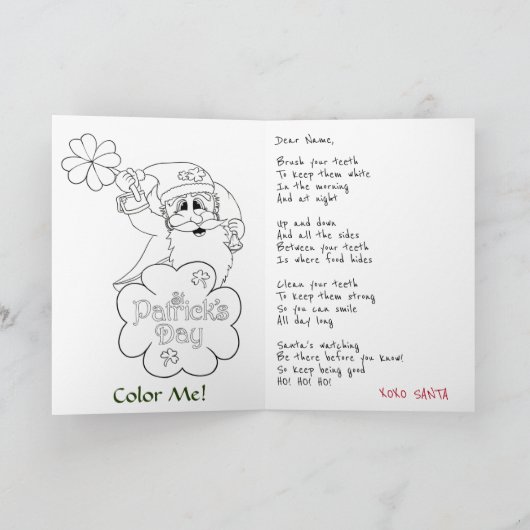 St
Patrick's
Day
Color Me!
Dear Name,
Brush your teeth
To keep them white
In the morning
And at night
Up and down
And all the sides
Between your teeth
Is where food hides
Clean your teeth
To keep them strong
So you can smile
All day long
Santa's watching
Be there before you know!
So keep being good
HO! HO! HO!
XOXO SANTA